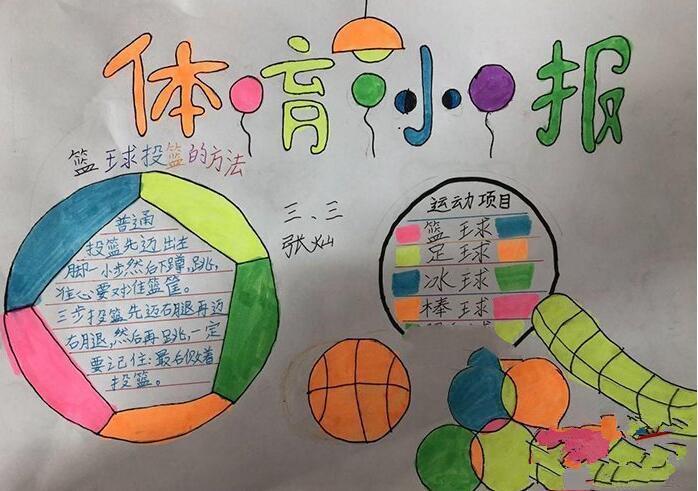 体育小报
篮球投篮的方法
普通
投篮先迈出左
脚一小步然后下蹲,跳,
准心要对准篮筐。
三步投篮先迈右腿再迈
右腿,然后再跳,一定
要记住:最后
投篮。
三、三
张灿
运动项目
篮球
足球
冰球
棒球